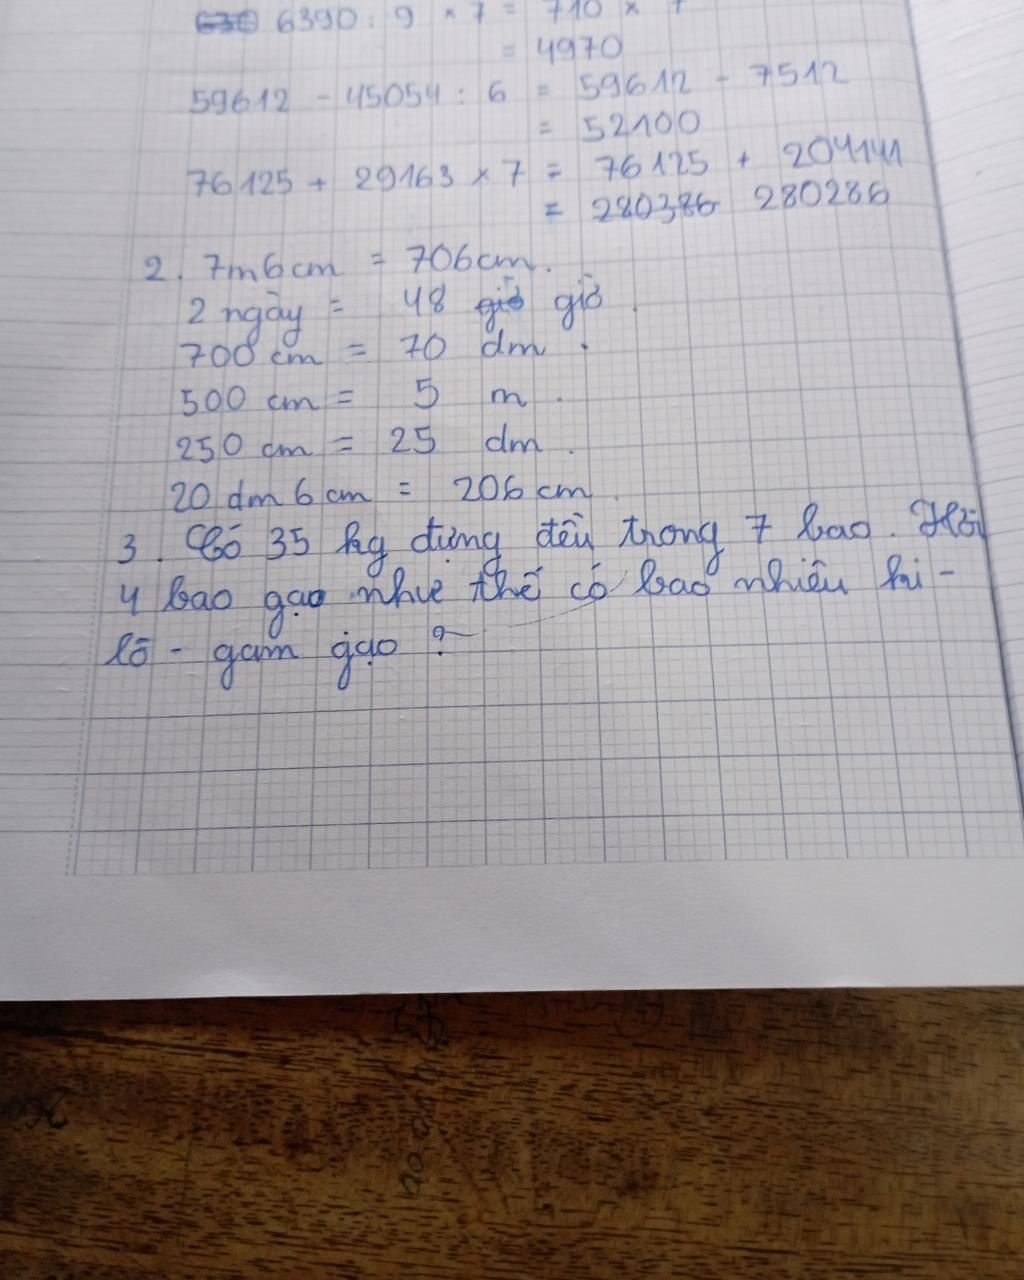 6390 : 9 × 7 = 710 × 7
= 4970
59612 - 45054 : 6 = 59612 - 7512
= 52100
76125 + 29163 × 7 = 76125 + 204141
= 280386 280286
2. 7m6cm = 706cm.
2 ngày = 48 giờ giờ.
700 cm = 70 dm.
500 cm = 5 m.
250 cm = 25 dm.
20 dm 6 cm = 206 cm.
3. Có 35 kg đựng đều trong 7 bao. Hỏi
4 bao gạo như thế có bao nhiêu ki-
lô - gam gạo ?